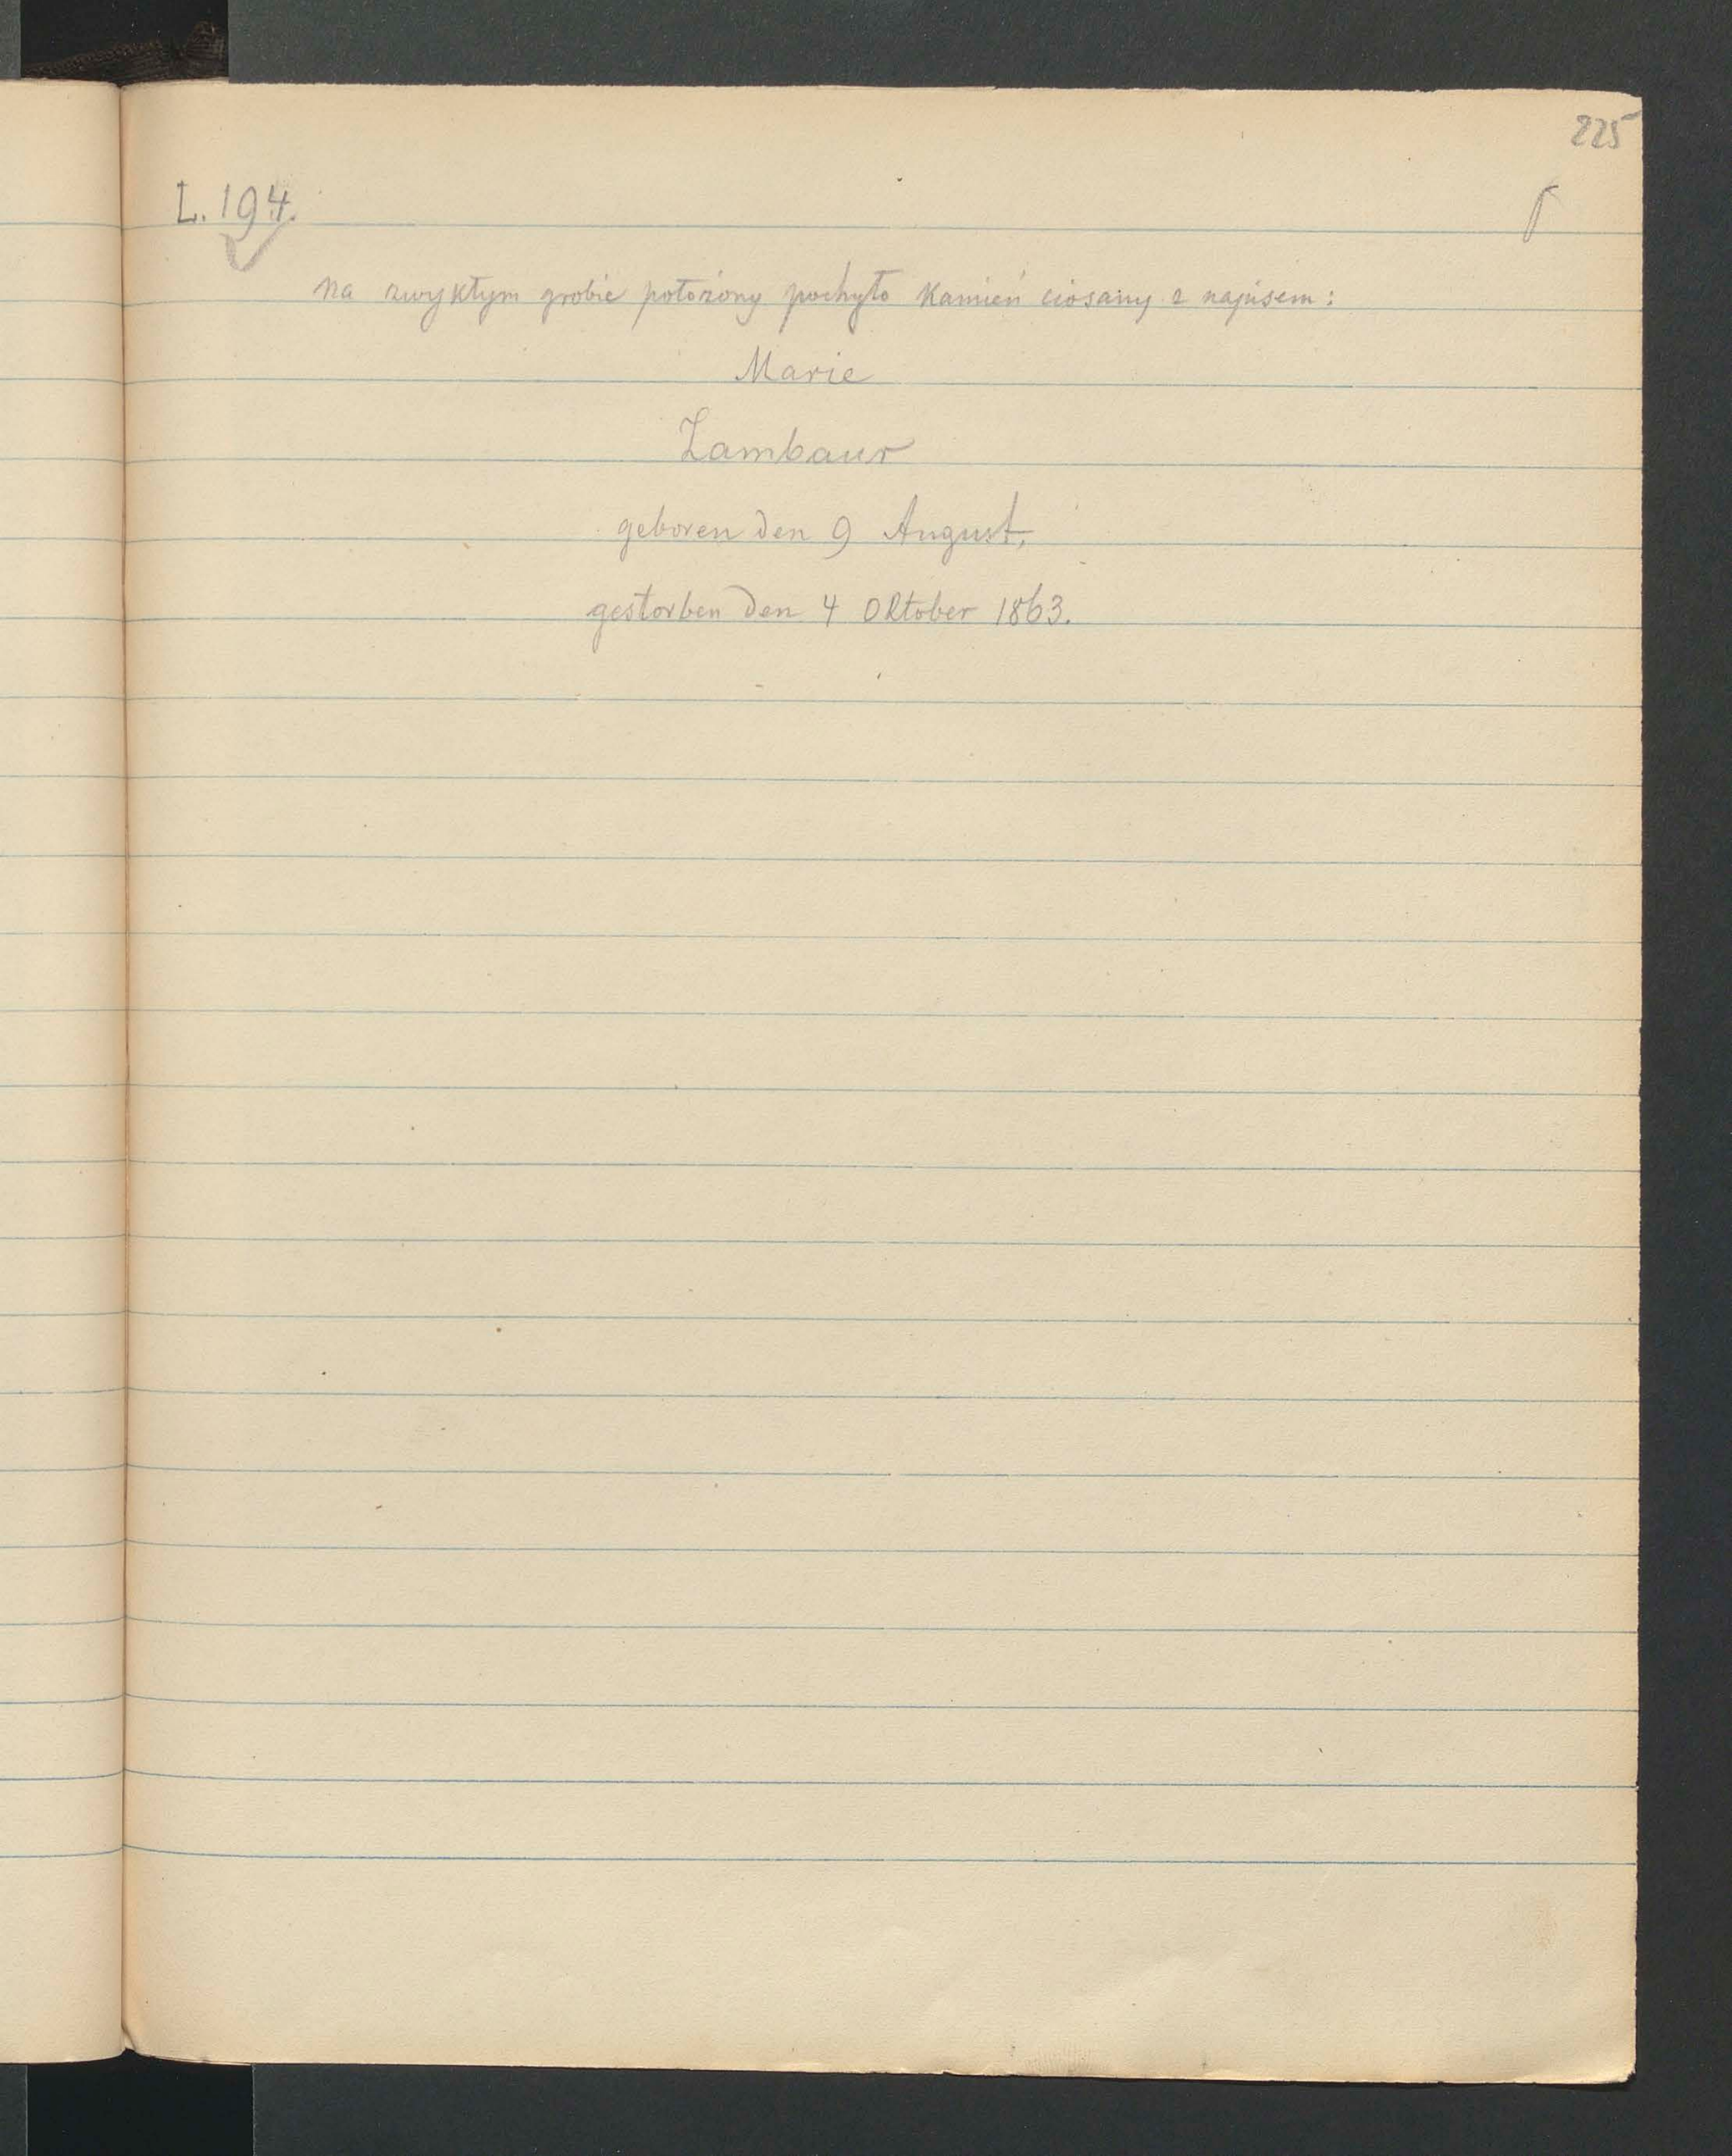 225
L. 194.
Na zwykłym grobie położony pochyło kamień ciosany z napisem:
Marie
Zambaur
geboren den 9 August,
gestorben den 4 Oktober 1863.